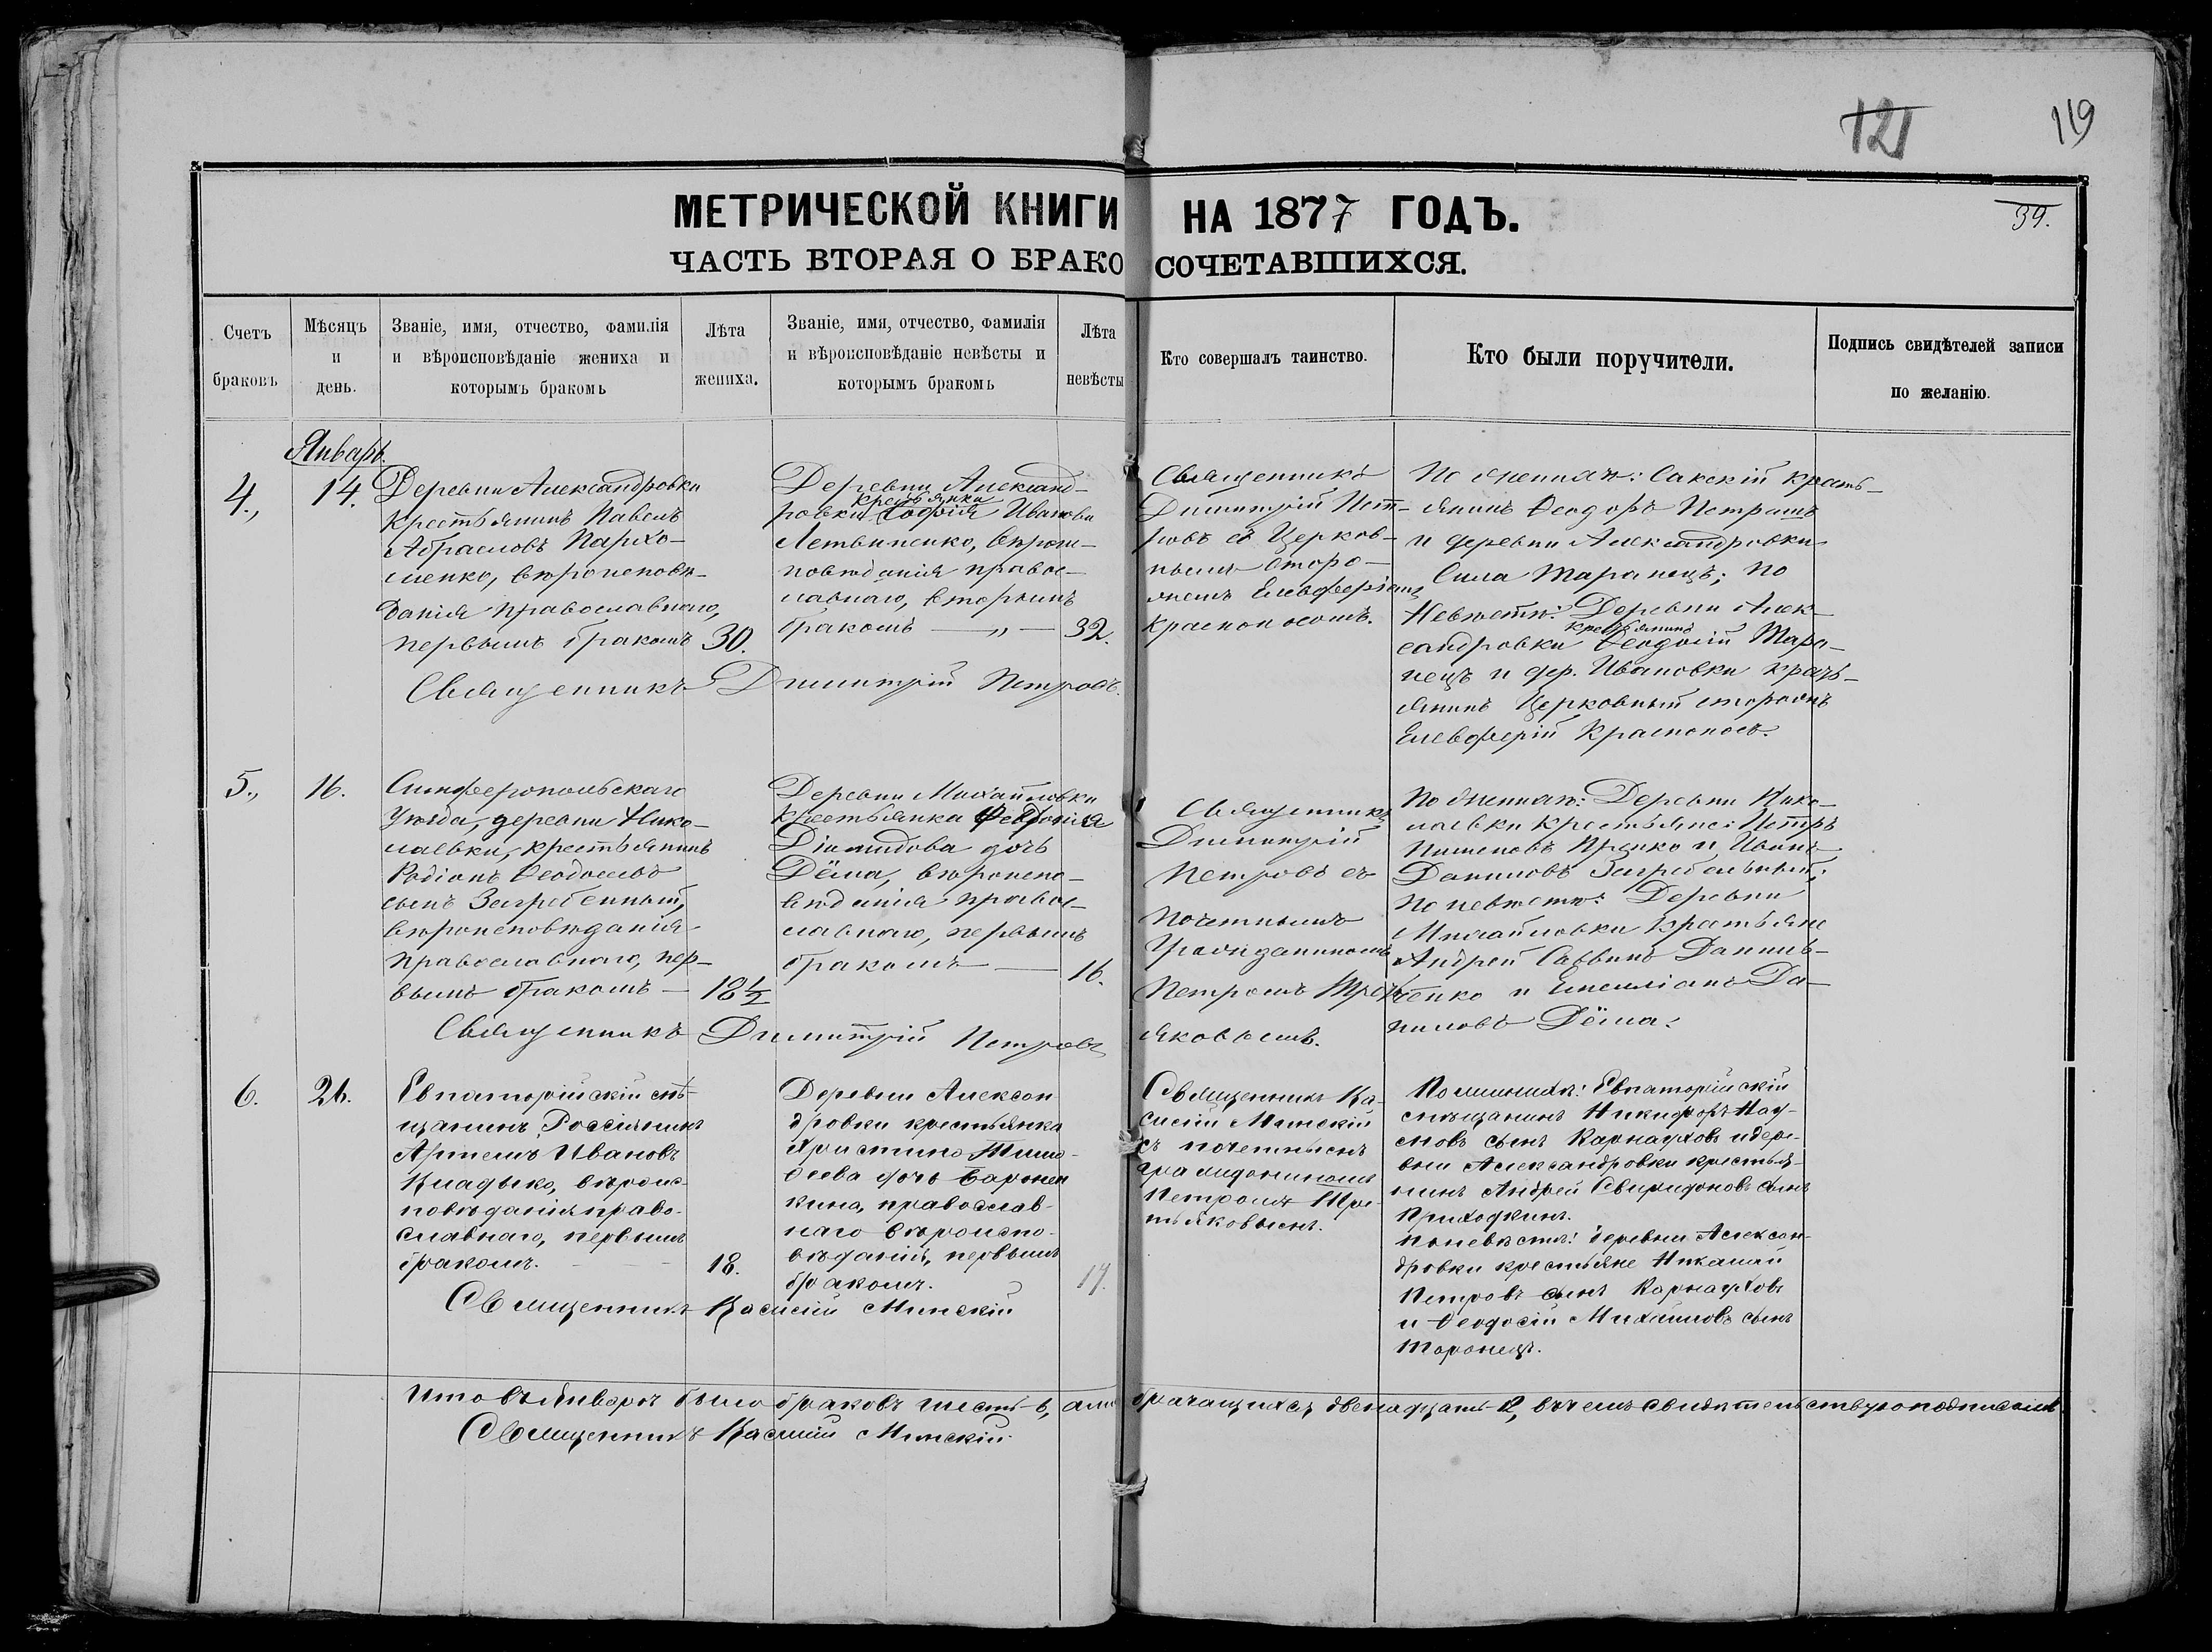 121
119
39.
МЕТРИЧЕСКОЙ КНИГИ НА 1877 ГОДЪ.
ЧАСТЬ ВТОРАЯ О БРАКОСОЧЕТАВШИХСЯ.
Счетъ
браковъ
Мѣсяцъ
и
день.
Званіе, имя, отчество, фамилія
и вѣроисповѣданіе жениха и
которымъ бракомъ
Лѣта
жениха.
Званіе, имя, отчество, фамилія
и вѣроисповѣданіе невѣсты и
которымъ бракомъ
Лѣта
невѣсты
Кто совершалъ таинство.
Кто были поручители.
Подпись свидѣтелей записи
по желанію.
Январь.
4.,
14.
Деревни Александровки
крестьянинъ Павелъ
Абрамовъ Пархо-
менко, вѣроисповѣ-
данія православнаго,
первымъ бракомъ
30.
Деревни Александ-
крестьянка
ровки Софія Иванова
Летвиненко, вѣроис-
повѣданія правос-
лавнаго, вторымъ
бракомъ — „ —
32.
Священникъ
Димитрій Пет-
ровъ съ Церков-
нымъ сторо-
жемъ Елевферіемъ
Красноносомъ.
По женихѣ: Сакскій кресть-
янинъ Ѳеодоръ Петрашъ
и деревни Александровки
Сила Таранецъ; По
Невѣстѣ: Деревни Алек-
крестьянинъ
сандровки Ѳеодосій Тара-
нецъ и дер. Ивановки кресть-
янинъ Церковный сторожъ
Елевферій Красноносъ.
Священникъ Димитрій Петровъ.
5.,
16.
Симферопольскаго
Уѣзда, деревни Нико-
лаевки, крестьянинъ
Родіонъ Ѳеодосіевъ
сынъ Загребенный,
вѣроисповѣданія
православнаго, пер-
вымъ бракомъ —
18 1/2
Деревни Михайловки
крестьянка Февронія
Діомидова дочь
Дёма, вѣроиспо-
вѣданія правос-
лавнаго, первымъ
бракомъ —
16.
Священникъ
Димитрій
Петровъ съ
почетнымъ
Гражданиномъ
Петромъ Трет-
яковымъ.
По женихѣ: Деревни Нико-
лаевки крестьяне: Петръ
Пименовъ и Иванъ
Даниловъ Загребельный;
По невѣстѣ: Деревни
Михайловки крестьяне
Андрей Саввинъ Даниль-
ченко и Емеліанъ Да-
ниловъ Дёма.
Священникъ Димитрій Петровъ
6.
26.
Евпаторійскій мѣ-
щанинъ Россіянинъ
Артемъ Ивановъ
Кладько, вѣроис-
повѣданія право-
славнаго, первымъ
бракомъ. — —
18.
Деревни Алексан
дровки крестьянка
Христина Тимо-
ѳеева дочь
кина, православ-
наго вѣроиспо-
вѣданія, первымъ
бракомъ.
17.
Священникъ Ка-
ссій Минскій
съ почетнымъ
гражданиномъ
Петромъ Тре-
тьяковымъ.
По женихѣ: Евпаторійскій
мѣщанинъ Никифоръ Нау-
мовъ сынъ Карнауховъ и дере-
вни Александровки крестья-
нинъ Андрей Свиридоновъ сынъ
Приходкинъ.
По невѣстѣ: деревни Алексан-
дровки крестьяне
Петровъ сынъ Карнауховъ
и Ѳеодосій Михайловъ сынъ
Таранецъ.
Священникъ Кассій Минскій
Итого въ Январѣ было браковъ шесть 6, а лицъ брачащихся двенадцать 12, въ чемъ свидѣтельствую подписомъ
Священникъ Кассій Минскій